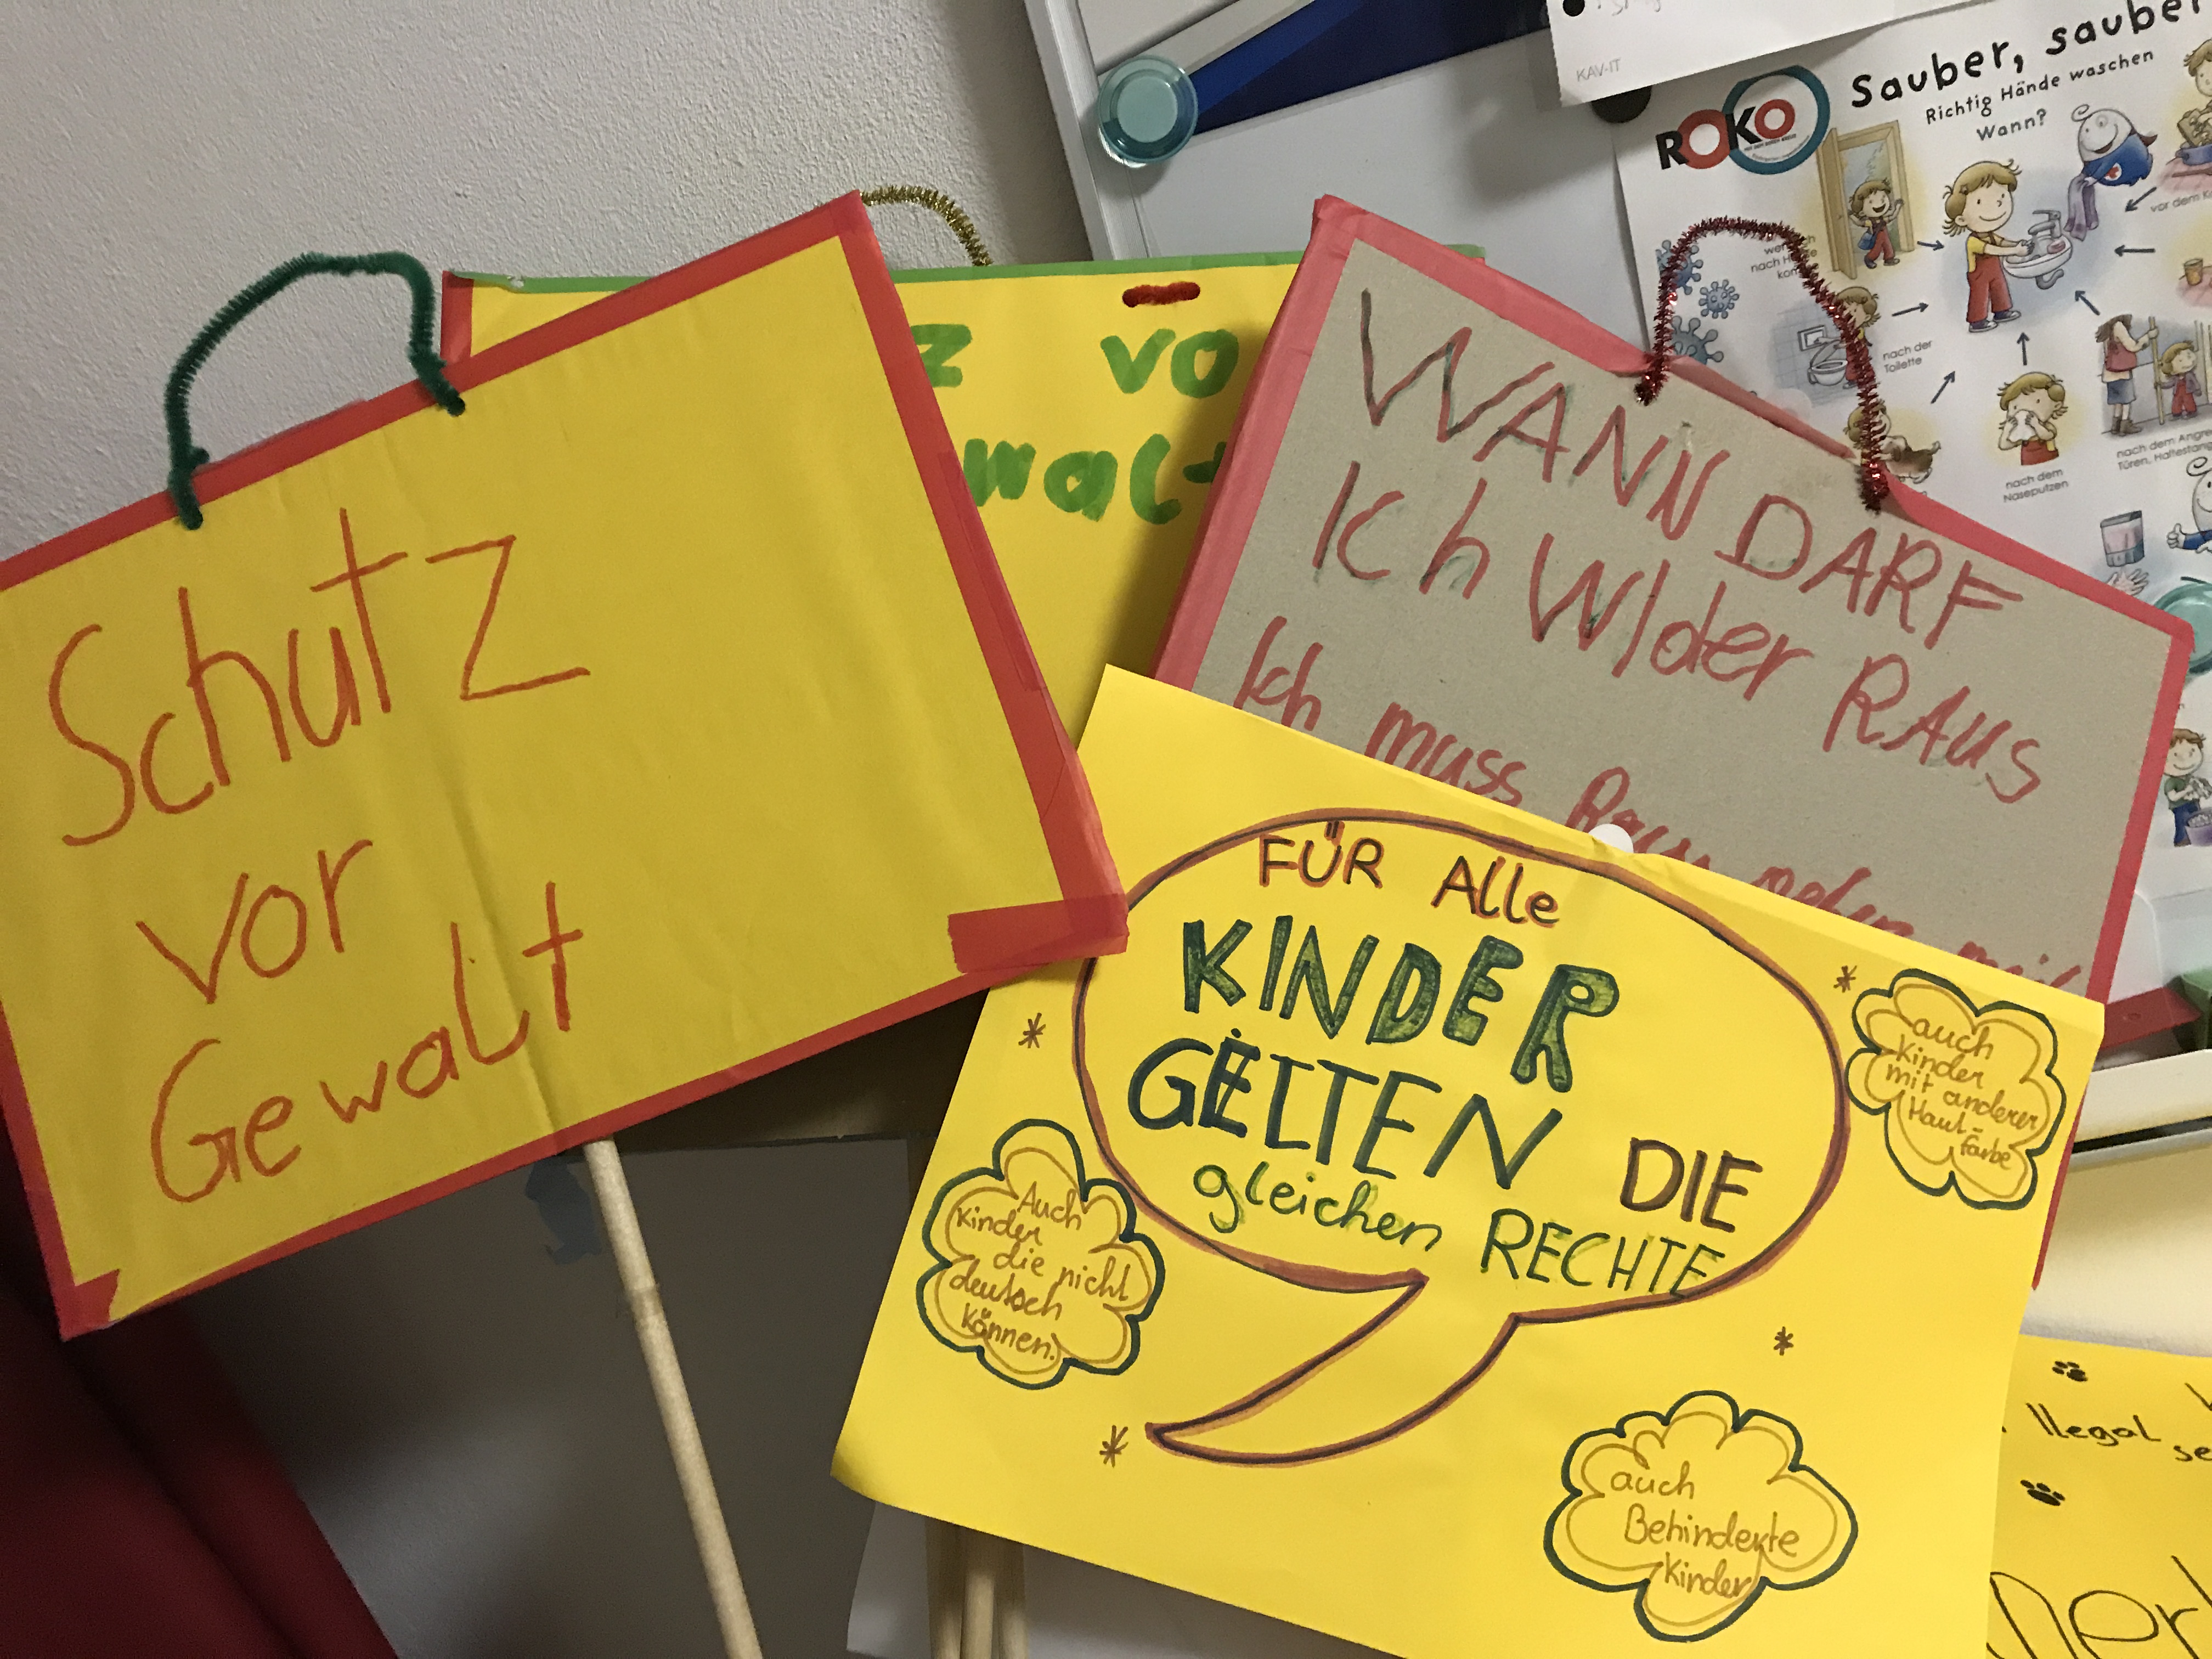 Schutz
vor
Gewalt
z vo
walt
WANN DARF
Ich WIder RAus
Ich muss Raus oder
FÜR Alle
KINDER
GELTEN DIE
gleichen RECHTE
auch
Kinder
mit anderer
Haut-
farbe
Auch
Kinder
die nicht
deutsch
können.
auch
Behinderte
Kinder
Ilegal
se
KAV-IT
ROKO
Sauber, sauber
Richtig Hände waschen
Wann?
nach der
Toilette
nach dem
Naseputzen
nach dem
Türen, Haltestang
vor dem